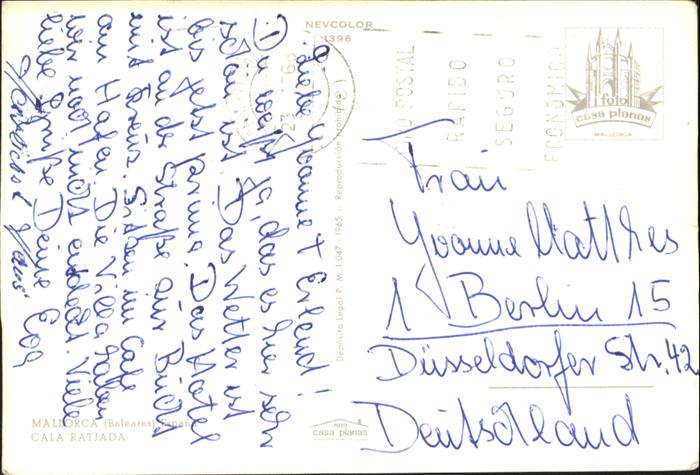 NEVCOLOR
1396
Liebe Yvonne + Erland!
Du weißt ja, das es hier sehr
schön ist. Das Wetter ist
bis jetzt prima. Das Hotel
ist an der Straße zur Bucht
mit Sitzen im Café
am Hafen. Die Villa haben
wir noch nicht entdeckt. Viele
liebe Grüße Deine Eva
Hans
PORTE POSTAL
RAPIDO
SEGURO
ECONOMICO
foto
casa planas
MALLORCA
Frau
Yvonne Matthes
1 Berlin 15
Düsseldorfer Str. 42
Deutschland
Depósito Legal P. M. 1.047 - 1965 - Reproducción prohibida
MALLORCA (Baleares) España
CALA RATJADA
FOTO
casa planas